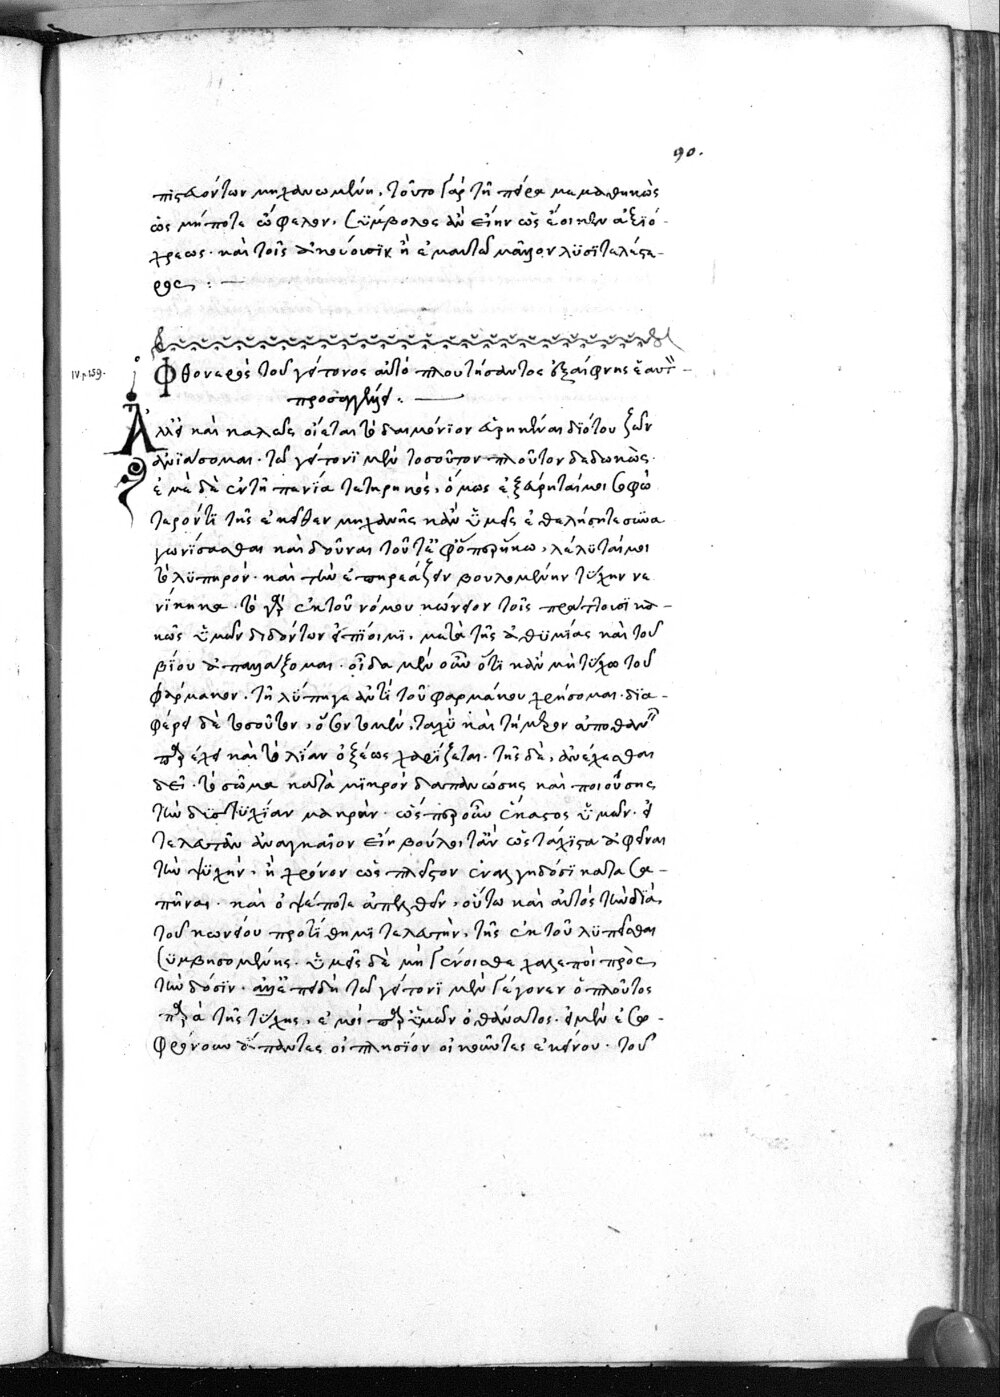 90.
πιστευόντων μηχανωμένη. τοῦτο γὰρ τῇ πείρᾳ μεμαθηκὼς
ὡς μήποτε ὤφελον. σύμβολος ἂν εἴην ὡς ἔοικεν ἀξιό-
χρεως. καὶ τοῖς ἀκούουσιν ἢ ἐμαυτῷ μᾶλλον λυσιτελέστε-
ρος :—
IV p. 159.
Φθονερὸς τοῦ γείτονος αὐτοῦ πλουτήσαντος ἐξαίφνης ἑαυτὸν
προσαγγέλλει :—
Ἀλλ' εἰ καὶ καλῶς οἴεται τὸ δαιμόνιον εἰρηκέναι διότου ζῶν
ἀνιάσομαι. τῷ γείτονι μὲν τοσοῦτον πλοῦτον δεδωκὼς.
ἐμὲ δὲ ἐν τῇ πενίᾳ τετηρηκός, ὅμως ἐξεύρηταί μοι σοφώ
τερόν τι τῆς ἐκεῖθεν μηχανῆς κἂν ὑμεῖς ἐθελήσητε συνα
γωνίσασθαι καὶ δοῦναι τοῦτ' ἐφ' ὅπερ ἥκω, λέλυταί μοι
τὸ λυπηρόν. καὶ τὴν ἐπηρεάζειν βουλομένην τύχην νε
νίκηκα. τὸ γὰρ ἐκ τοῦ νόμου κώνειον τοῖς πράττουσι κα-
κῶς ὑμῶν διδόντων ἐπίοιμι. μετὰ τῆς ἀθυμίας καὶ τοῦ
βίου ἀπαλλάξομαι. οἶδα μὲν οὖν ὅτι κἂν μὴ τύχω τοῦ
φαρμάκου. τῇ λύπῃ γε ἀντὶ τοῦ φαρμάκου χρήσομαι. δια-
φέρει δὲ τοσοῦτον, ὅσον τὸ μὲν, ταχὺ καὶ τὴν μέλλον ἀποθανεῖν
παρέχει καὶ τὸ λίαν ὀξέως χαρίζεται. τῆς δὲ, ἀνέχεσθαι
δεῖ. τὸ σῶμα κατὰ μικρὸν δαπανώσης καὶ ποιούσης
τὴν δυστυχίαν μακράν. ὥσπερ οὖν ἕκαστος ὑμῶν. εἰ
τελευτᾶν ἀναγκαῖον εἴη βούλοιτ' ἂν ὡς τάχιστα ἀφεῖναι
τὴν ψυχήν. ἢ χρόνον ὡς πλεῖστον ἐν ἀλγηδόσι κατασα-
πῆναι. καὶ ὀψέποτε ἀπελθεῖν, οὕτω καὶ αὐτὸς τὴν διὰ
τοῦ κωνείου προτίθημι τελευτὴν. τῆς ἐκ τοῦ λυπεῖσθαι
συμβησομένης. ὑμεῖς δὲ μὴ γένοισθε χαλεποὶ πρὸς
τὴν δόσιν. ἀλλ' ἐπειδὴ τῷ γείτονι μὲν γέγονεν ὁ πλοῦτος
παρὰ τῆς τύχης, ἐμοὶ παρ' ὑμῶν ὁ θάνατος. εἰ μὲν ἐσω-
φρόνουν ἅπαντες οἱ πλησίον οἰκοῦντες ἐκείνου. τοῦ